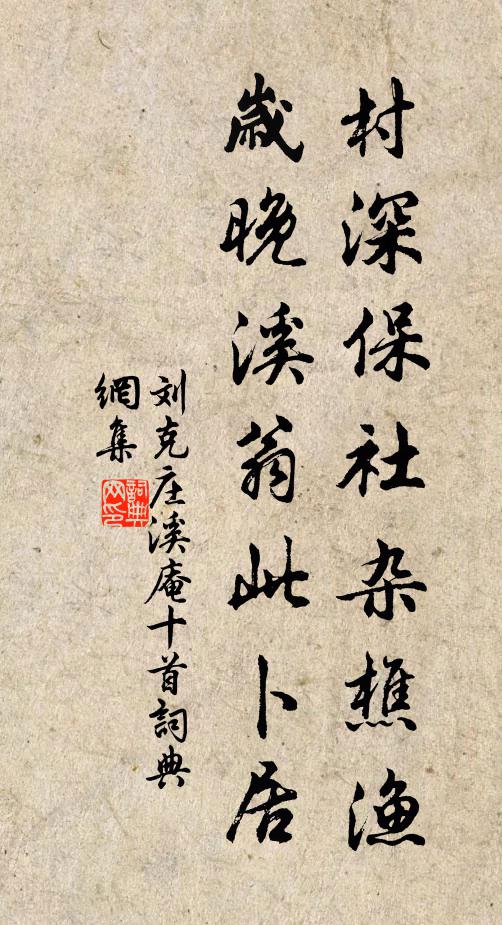 村深保社杂樵渔
岁晚溪翁此卜居
刘克庄溪庵十首詞典
網集
詞典
网印